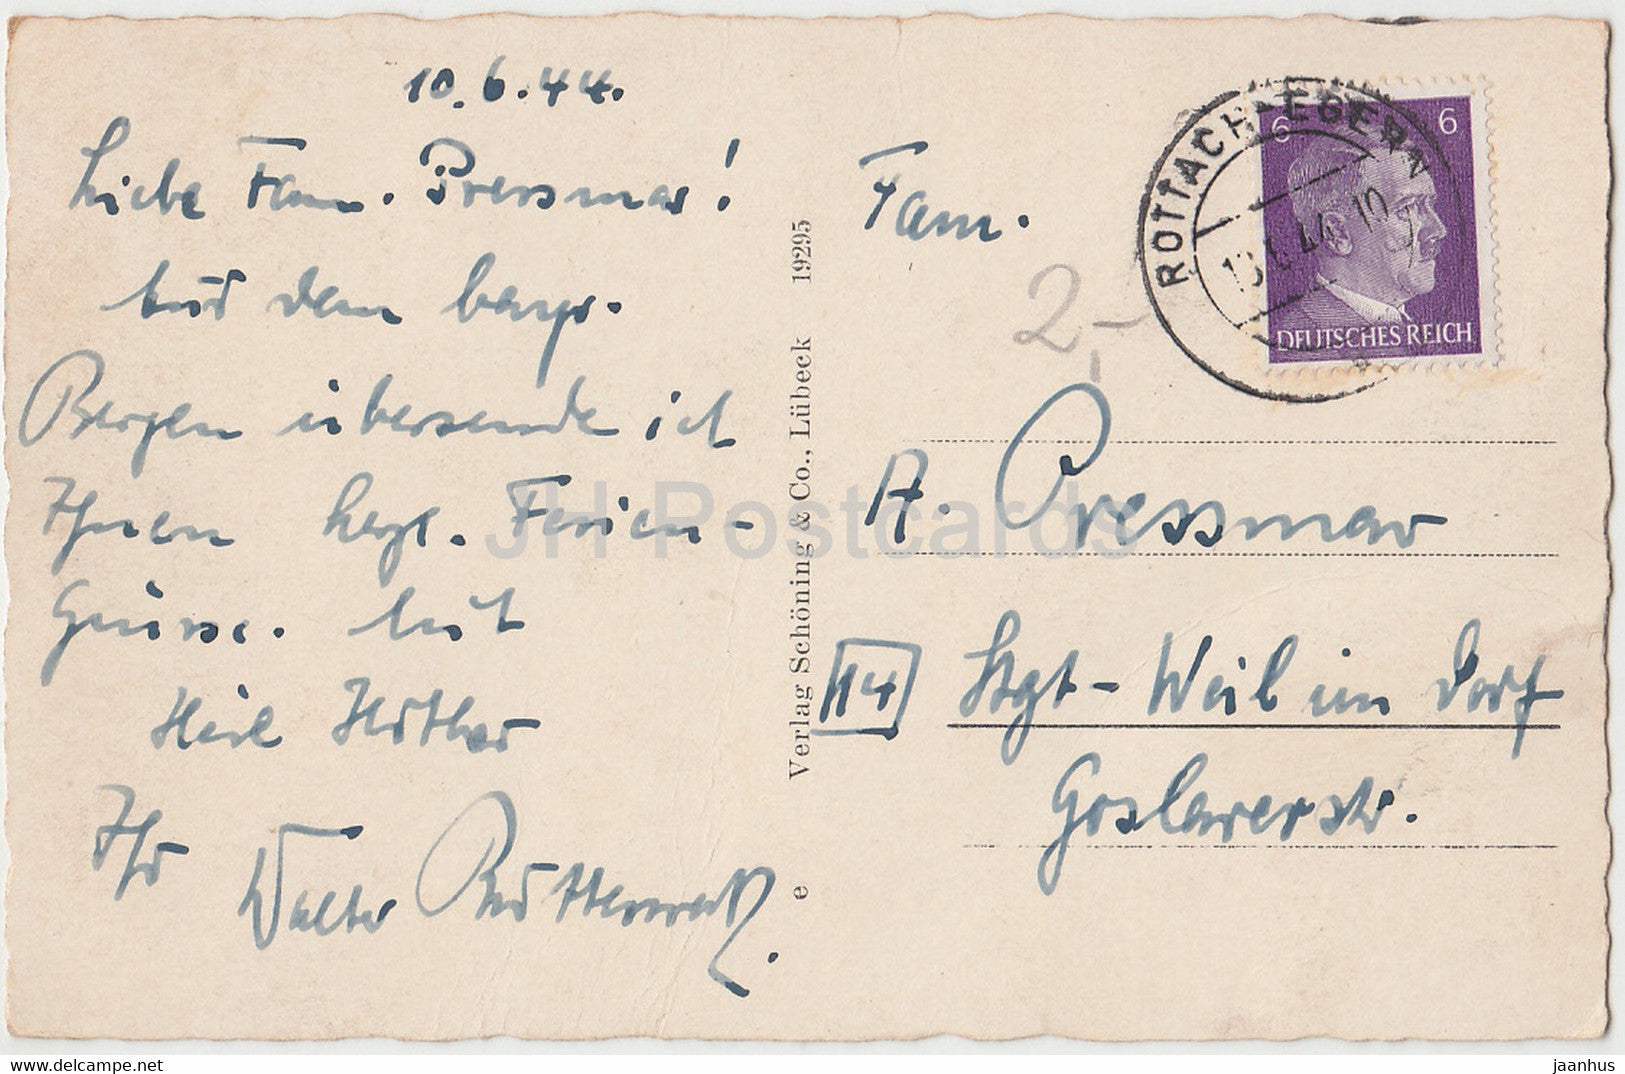 10.6.44.
Liebe Fam. Pressmar!
Aus den bayr.
Bergen übersende ich
Ihnen herzl. Ferien-
Grüsse. Mit
Heil Hitler
Ihr
Walter
Fam.
2,-
A. Pressmar
14
Stgt-Weil im Dorf
Goslarerstr.
ROTTACH-EGERN
6 6
DEUTSCHES REICH
Verlag Schöning & Co., Lübeck 19295
e
JH Postcards
www.delcampe.net
jaanhus